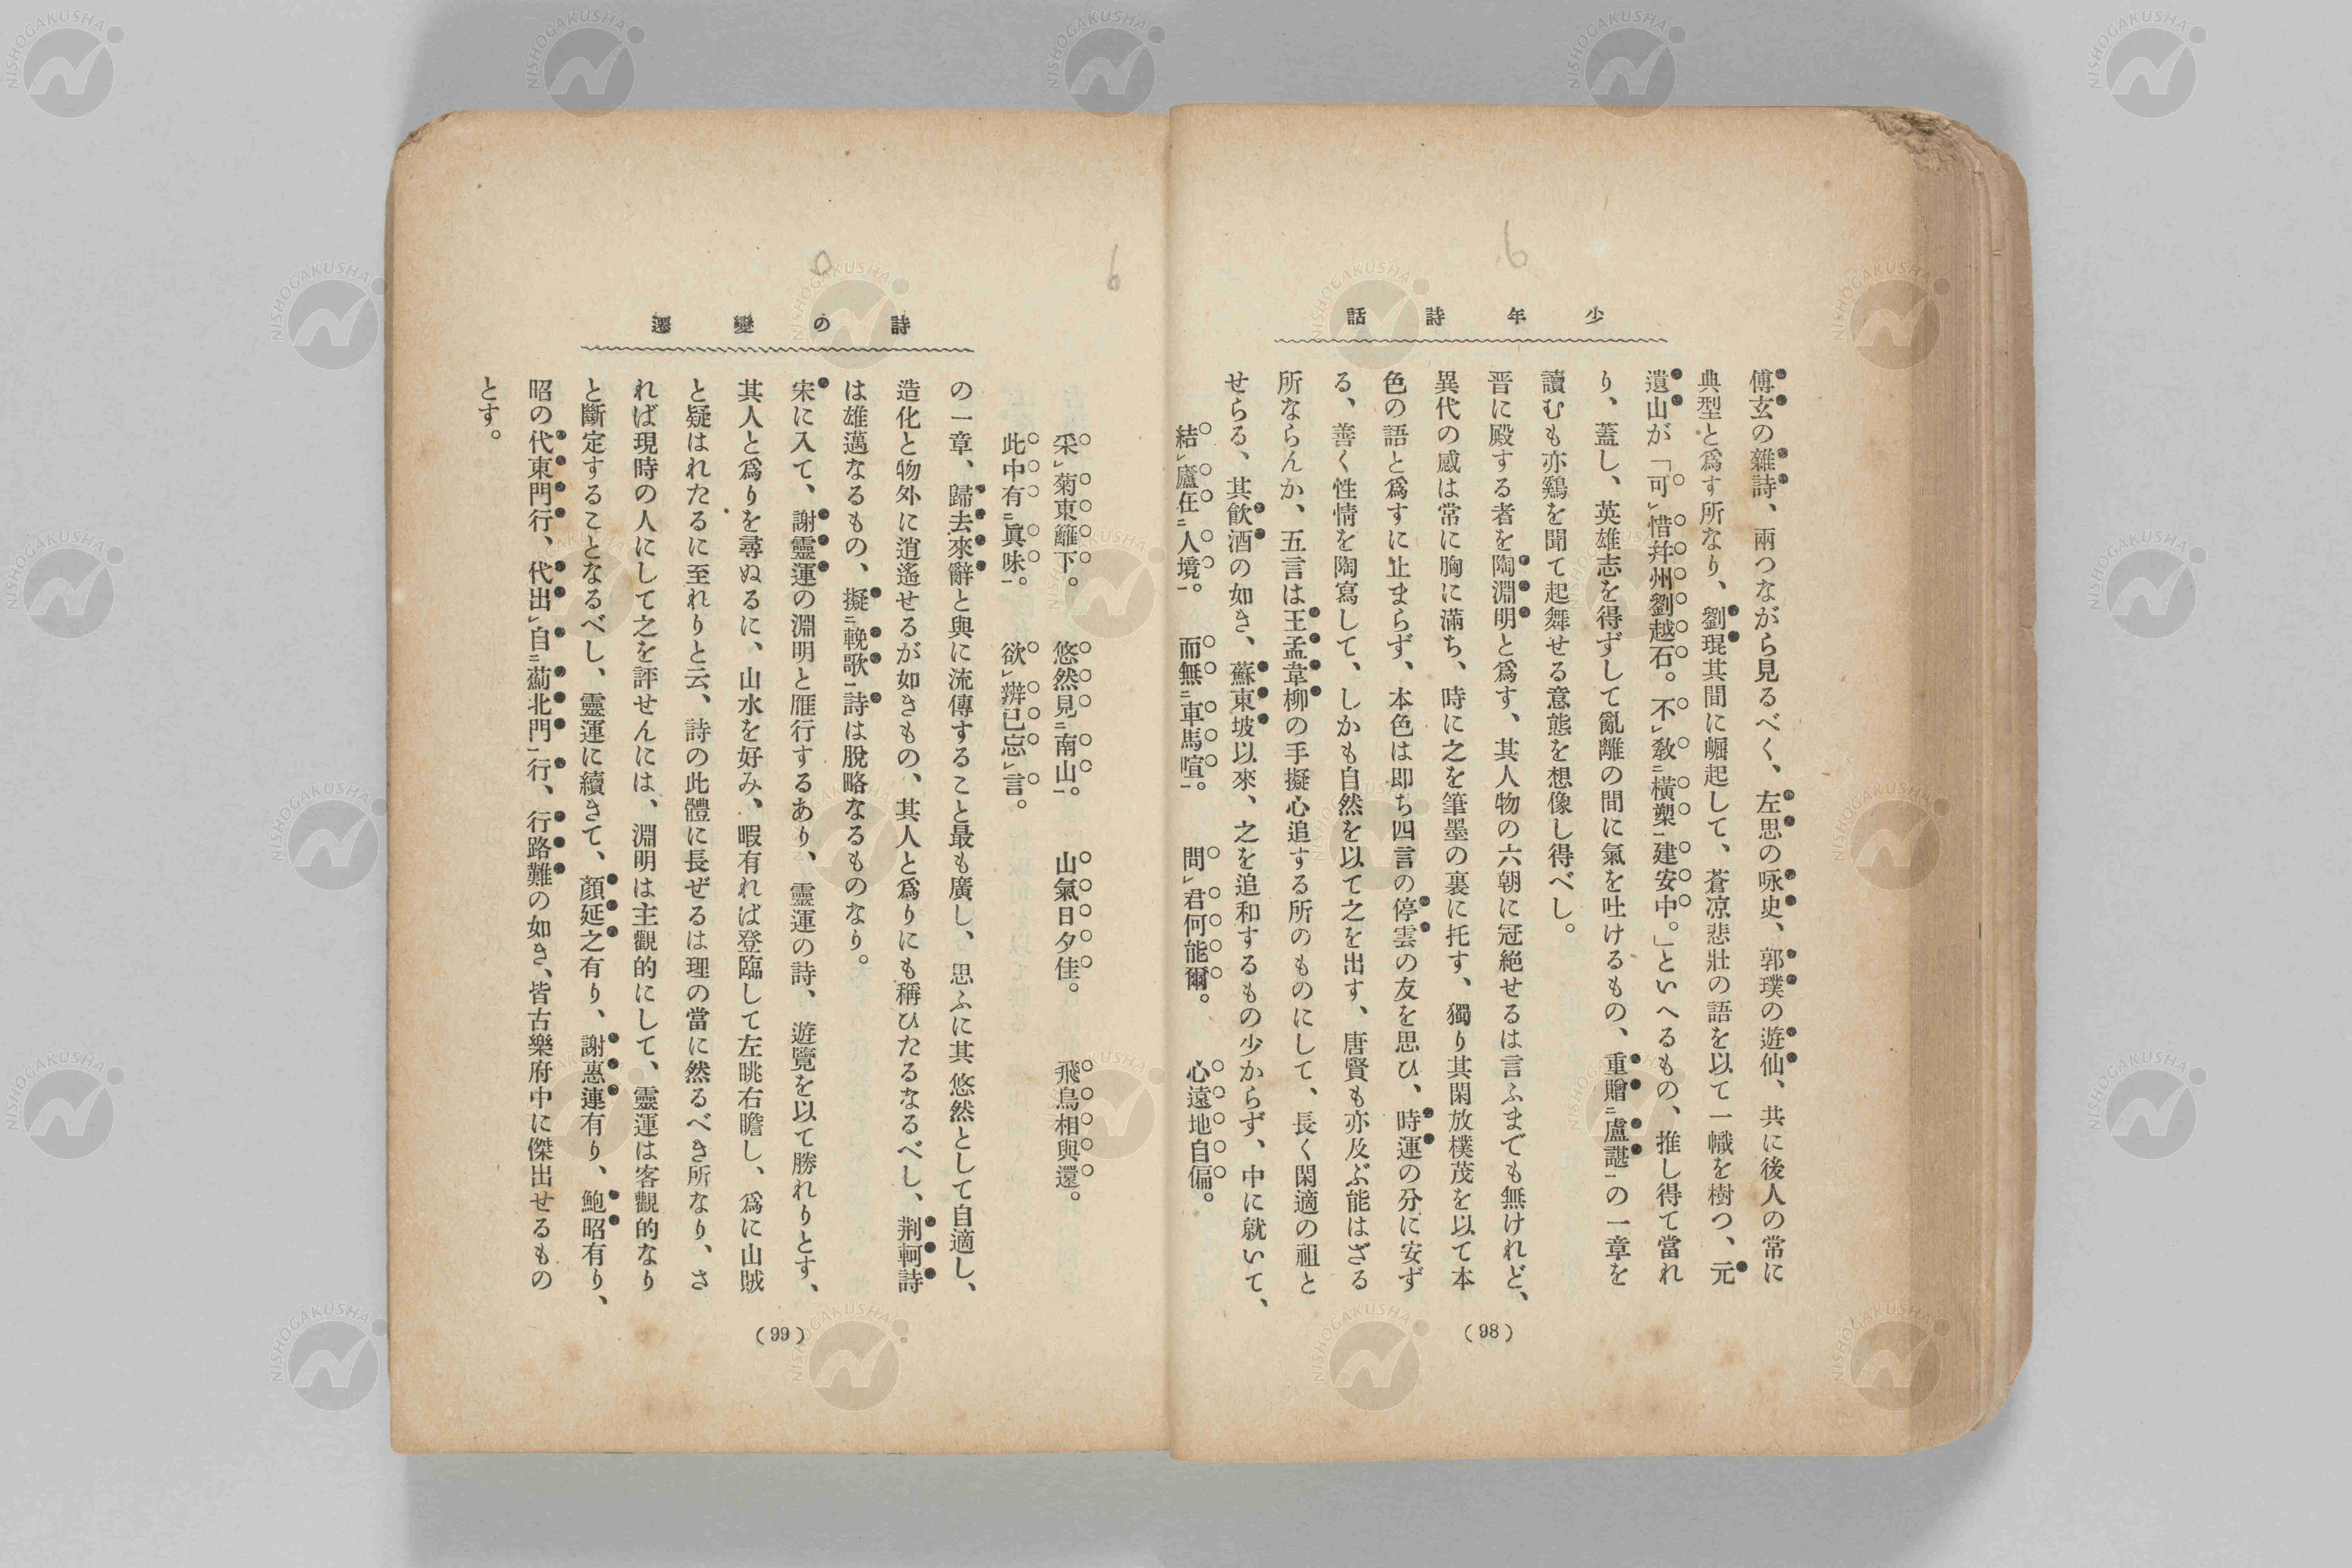 少年詩話
傅玄の雜詩、兩つながら見るべく、左思の咏史、郭璞の遊仙、共に後人の常に
典型と爲す所なり、劉琨其間に崛起して、蒼凉悲壯の語を以て一幟を樹つ、元
遺山が「可レ惜幷州劉越石。不レ敎二橫槊一建安中。」といへるもの、推し得て當れ
り、蓋し、英雄志を得ずして亂離の間に氣を吐けるもの、重贈二盧諶一の一章を
讀むも亦鷄を聞て起舞せる意態を想像し得べし。
晋に殿する者を陶淵明と爲す、其人物の六朝に冠絶せるは言ふまでも無けれど、
異代の感は常に胸に滿ち、時に之を筆墨の裏に托す、獨り其閑放樸茂を以て本
色の語と爲すに止まらず、本色は即ち四言の停雲の友を思ひ、時運の分に安ず
る、善く性情を陶寫して、しかも自然を以て之を出す、唐賢も亦及ぶ能はざる
所ならんか、五言は王孟韋柳の手擬心追する所のものにして、長く閑適の祖と
せらる、其飮酒の如き、蘇東坡以來、之を追和するもの少からず、中に就いて、
結レ廬在二人境一。 而無二車馬喧一。 問レ君何能爾。 心遠地自偏。
(98)
詩の變遷
采レ菊東籬下。 悠然見二南山一。 山氣日夕佳。 飛鳥相與還。
此中有二眞味一。 欲レ辨已忘レ言。
の一章、歸去來辭と與に流傳すること最も廣し、思ふに其悠然として自適し、
造化と物外に逍遙せるが如きもの、其人と爲りにも稱ひたるなるべし、荆軻詩
は雄邁なるもの、擬二輓歌一詩は脫略なるものなり。
宋に入て、謝靈運の淵明と雁行するあり、靈運の詩、遊覽を以て勝れりとす、
其人と爲りを尋ぬるに、山水を好み、暇有れば登臨して左眺右瞻し、爲に山賊
と疑はれたるに至れりと云、詩の此體に長ぜるは理の當に然るべき所なり、さ
れば現時の人にして之を評せんには、淵明は主觀的にして、靈運は客觀的なり
と斷定することなるべし、靈運に續きて、顏延之有り、謝惠連有り、鮑昭有り、
昭の代東門行、代出レ自二薊北門一行、行路難の如き、皆古樂府中に傑出せるもの
とす。
(99)
NISHOGAKUSHA